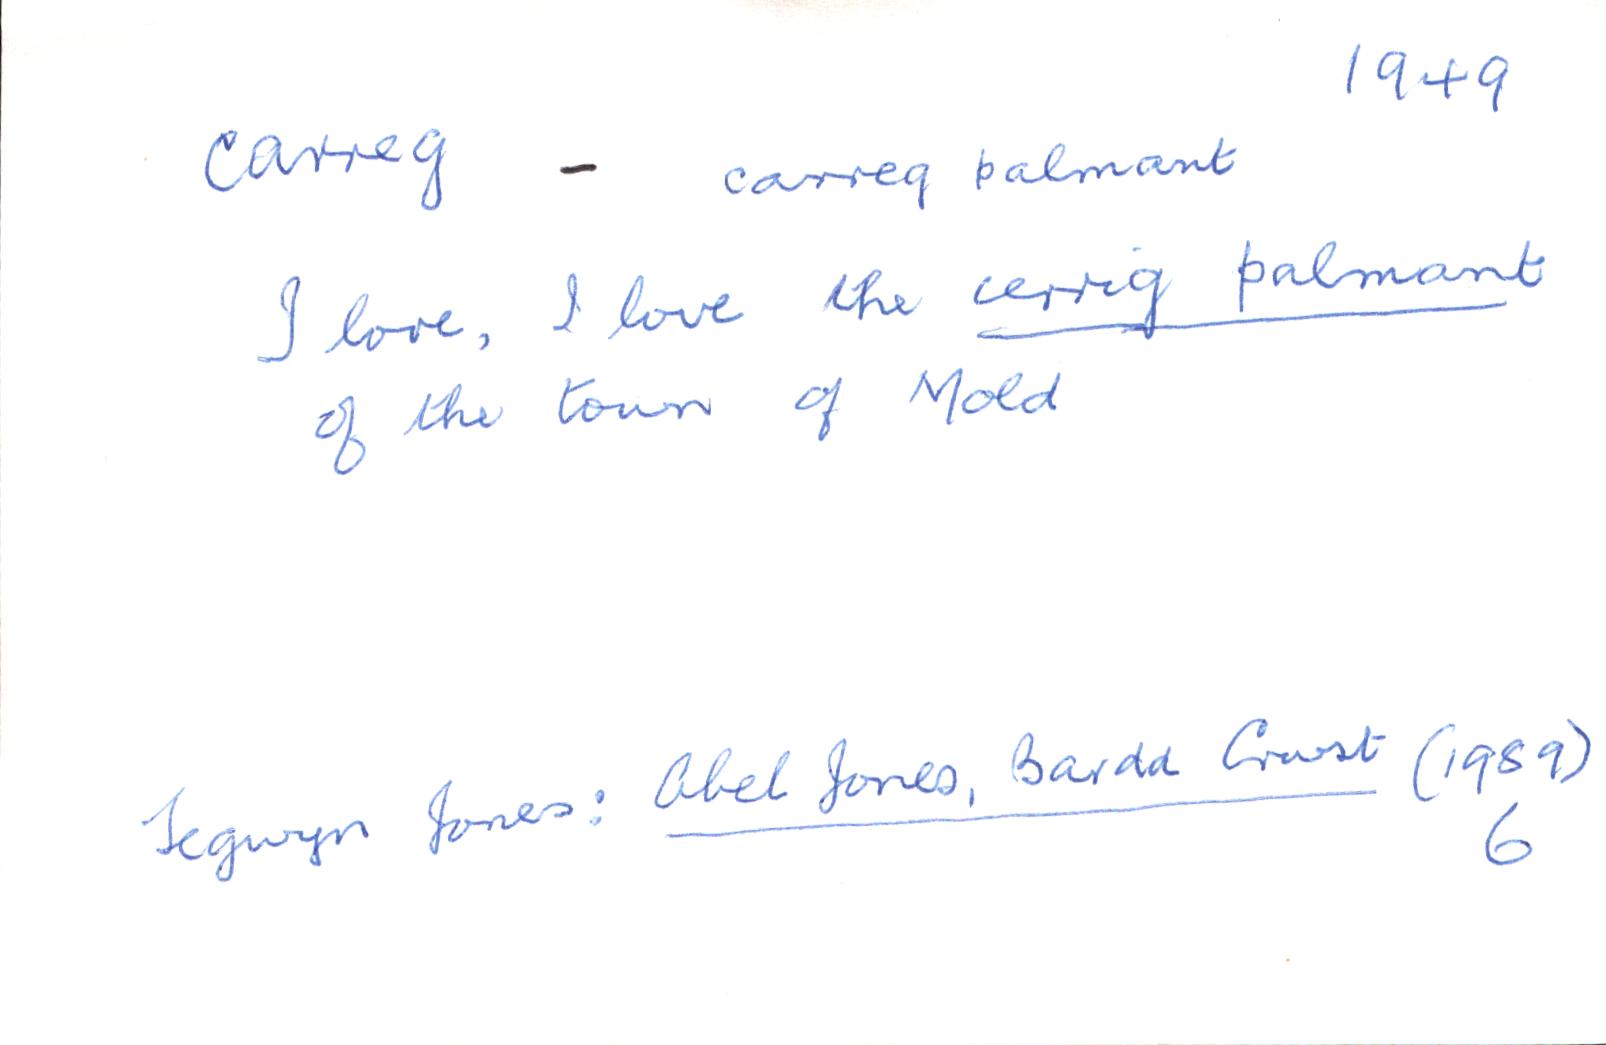 1949
carreg - carreg palmant
I love, I love the cerrig palmant
of the town of Mold
Tegwyn Jones: Abel Jones, Bardd Crwst (1989)
6